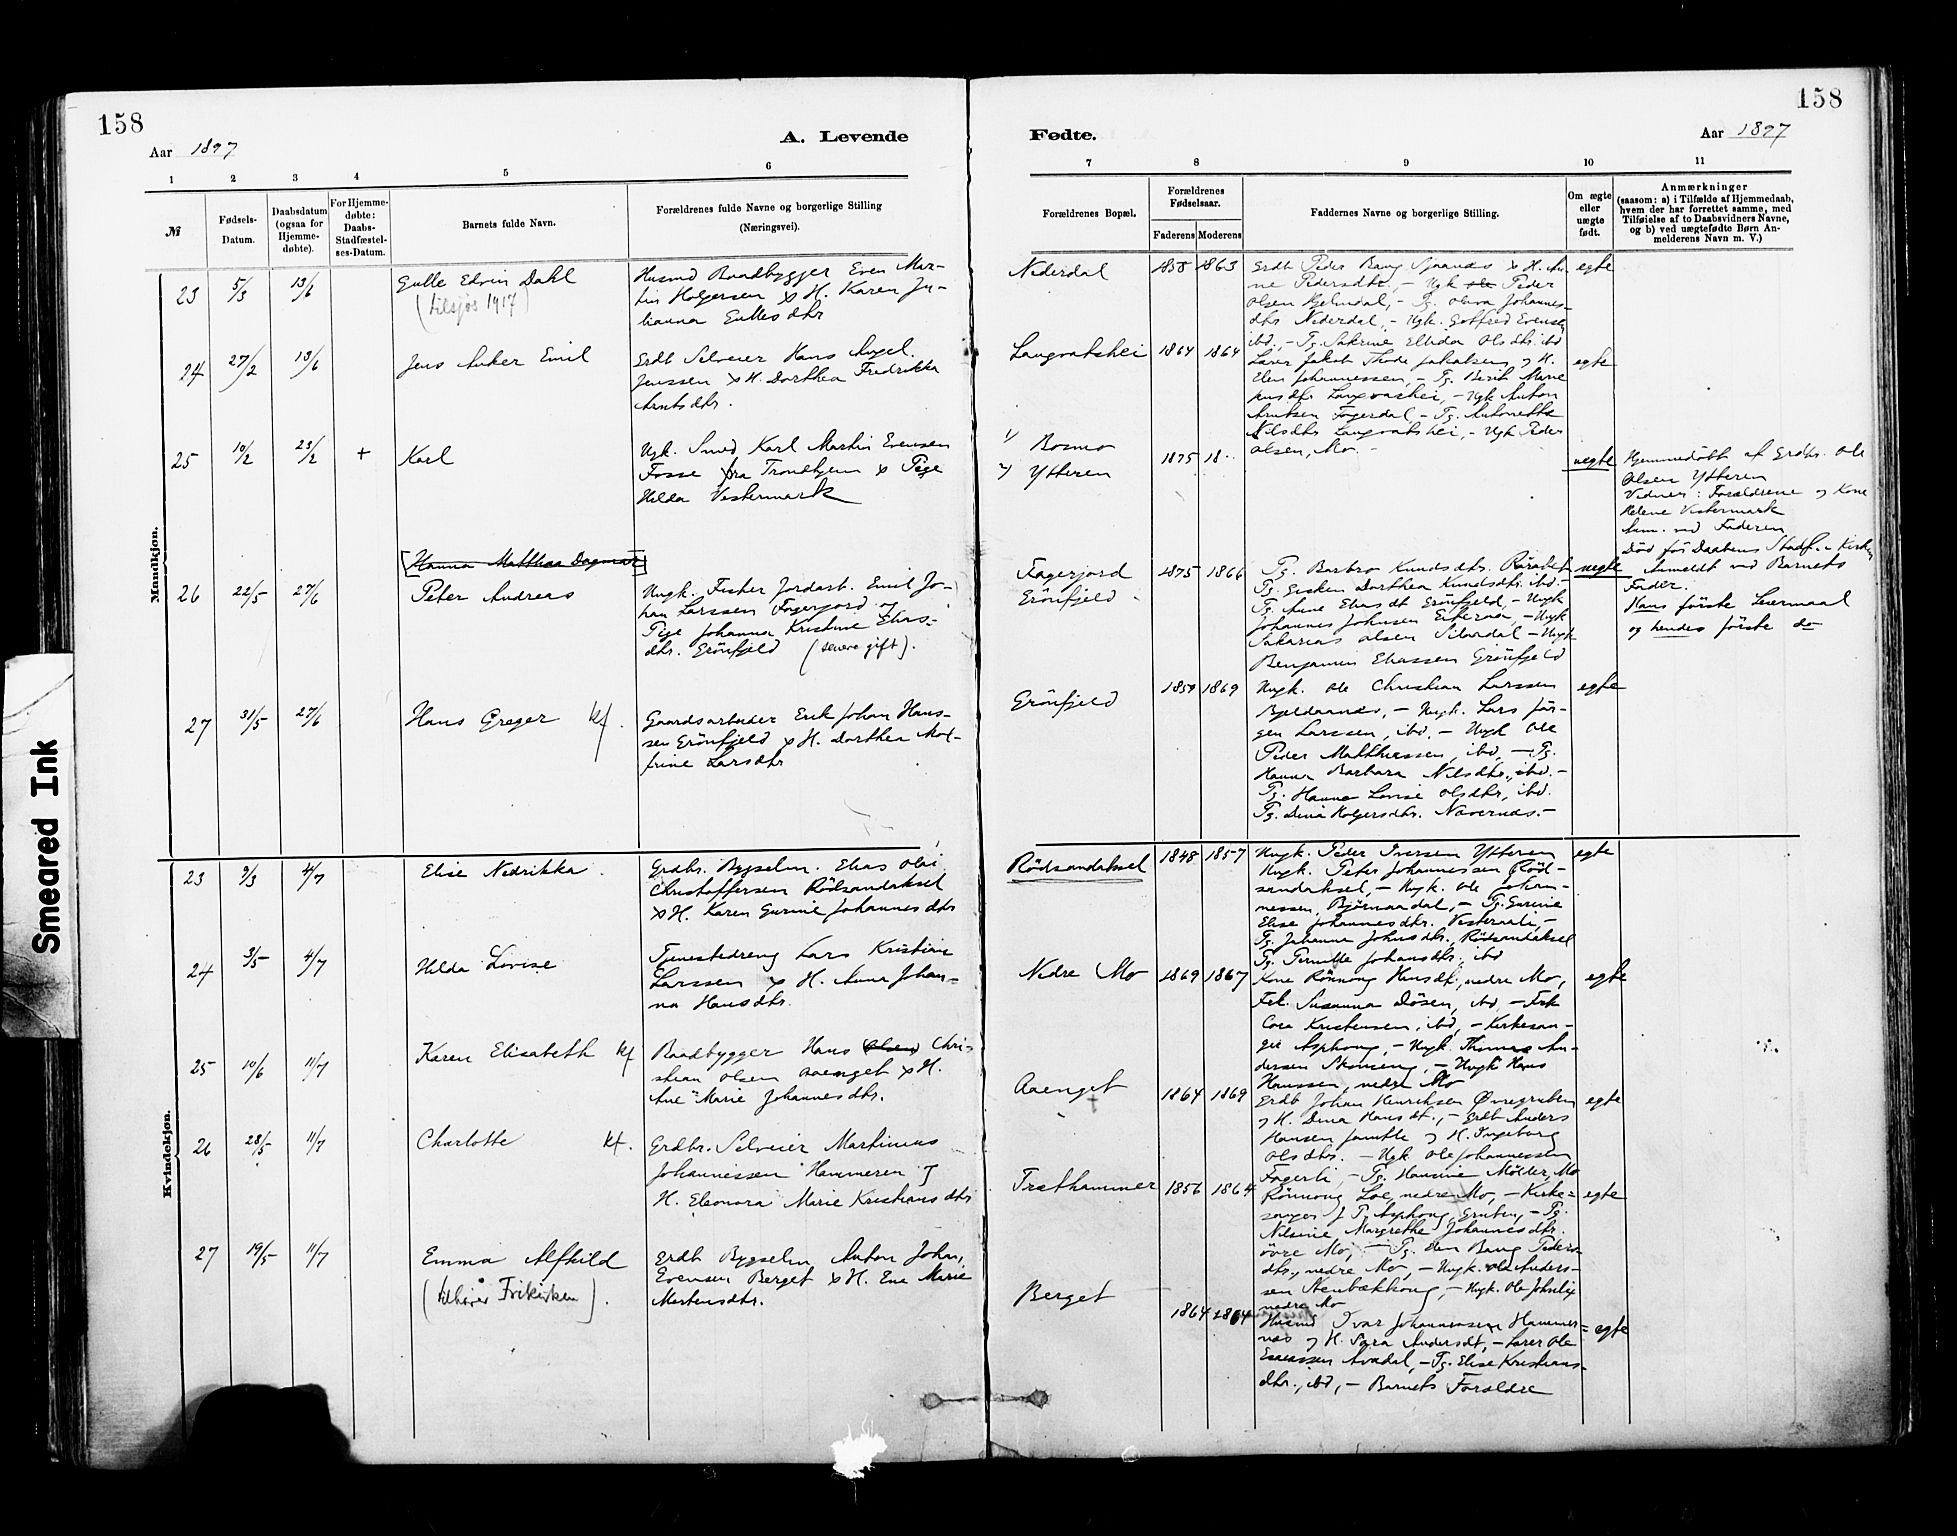 158
158
Aar 1897
A. Levende
Fødte.
Aar 1897
1 2 3 4 5 6
7 8 9 10 11
№
Fødsels-
Datum.
Daabsdatum
(ogsaa for
Hjemme-
døbte).
For Hjemme-
døbte:
Daabs-
Stadfæstel-
ses-Datum.
Barnets fulde Navn.
Forældrenes fulde Navne og borgerlige Stilling
(Næringsvei).
Forældrenes Bopæl.
Forældrenes
Fødselsaar.
Faderens Moderens
Faddernes Navne og borgerlige Stilling.
Om ægte
eller
uægte
født.
Anmærkninger
(saasom: a) i Tilfælde af Hjemmedaab,
hvem der har forrettet samme, med
Tilføielse af to Daabsvidners Navne,
og b) ved uægtefødte Børn An-
melderens Navn m. V.)
Mandkjøn.
23 5/3 13/6
Gulle Edvin Dahl
(tilføjs 1917)
Husmd Baadbygger Even Mar-
tin Holgersen & H. Karen Ju-
lianna Eullesdtr
Nederdal
1858 1863
Grdb Peder Bang Sjaanes & H. An-
ne Pedersdtr, - Ugk ole Peder
Olsen Hjelmdal, - Pg. Oliva Johannes-
dtr Nederdal, - Ugk. Gotfred Evensen
ibd. - Pg. Sakrine Ellida Olsdtr. ibd
egte
24 27/2 13/6
Jens Anker Emil
Grdb Selveier Hans Angel.
Jenssen & H. Dorthea Fredrikka
Arntsdtr.
Langvatshei
1864 1864
Lærer Jakob Thode Jakobsen og H.
Elen Johannessen, - Pg. Berit Marie
Jensdtr Langvashei, - Ugk Anton
Arntsen Fagerdal, - Pg. Antonette
Nilsdtr Langvatshei, - Ugk Peder
Olsen, Mo. -
egte
25 10/2 23/2 +
Karl
Ugk. Smed Karl Martin Evensen
Fosse fra Trondhjem & Pige
Hilda Vestermark
1) Bosmo
2) Ytteren
1875 18..
uegte
Hjemmedöbt af Grdbr. Ole
Olsen Ytteren
Vidner: Forældrene og Kone
Helene Vestermark
Anm. ved Faderen
Död för Daabens Stadf. i Kirken
[Hanna Matthea Dagmar]
26 22/5 27/6
Peter Andreas
Ungk. Fisher Jordarb. Emil Jo-
han Larssen Fagerjord og
Pige Johanna Kristine Elias-
dtr. Grönfjeld (senere gift).
Fagerjord
Grönfjeld
1875 1866
Pg. Barbro Knudsdtr. Raabat
Pg. Gurken Dorthea Knudsdtr. ibd. -
Pg. Anne Eliasdt Grönfjeld, - Ungk
Johannes Johnsen Eiteraa, - Ungk
Sakarias Olsen Silodal - Ungk
Benjamin Eliassen Grönfjeld
uegte
Anmeldt ved Barnets
Fader.
Hans förste Leiermaal
og hendes förste do
27 31/5 27/6
Hans Greger kf.
Gaardsarbeider Erik Johan Hans-
sen Grönfjeld & H. Dorthea Mar-
trine Larsdtr
Grönfjeld
1859 1869
Ungk. Ole Christian Larssen
Bjeldaanes, - Ungk. Lars Jör-
gen Larssen, ibd. - Ungk Ole
Peder Matthiessen, ibd, - Pg.
Hanna Barbara Nilsdtr., ibd. -
Pg. Hanna Lovise Olsdtr, ibd.
Pg. Dina Holgersdtr. Nævernes. -
egte
Kvindekjøn.
23 9/3 4/7
Elise Nedrikka.
Grdbr. Bygselm. Elias Olai
Christoffersen Rödsandaksel
& H. Karen Gurine Johannesdtr
Rödsandaksel
1848 1857
Ungk. Peder Iversen Ytteren
Ungk. Peter Johannessen Röd-
sandaksel, - Ungk. Ole Johan-
nessen, Björnaadal, - Pg. Gurine
Elise Johannesdtr. Vesteraali, -
Pg. Johanna Johnsdtr., Rödsandaksel
Pg. Pernille Johansdtr., ibd
egte
24 3/5 4/7
Hilda Lovise
Tjenestedreng Lars Kristian
Larssen & H. Anna Johan-
na Hansdtr.
Nedre Mo
1869 1867
Kone Rönnoug Hansdt, nedre Mo,
Frk. Susanna Dösen, ibd, - Frk
Cora Kristensen, ibd, - Kirkesan-
ger Asphoug, - Ungk. Thomas An-
dersen Skonseng, - Ungk Hans
Hanssen, nedre Mo
egte
25 10/6 11/7
Karen Elisabeth kf
Baadbygger Hans Olsen Chri-
stian Olsen Aaenget & H.
Ane Marie Johannesdtr.
Aaenget
1864 1869
Grdb Johan Henriksen Övregruben
og H. Dina Hansdt., - Grdb Anders
Hansen Jamtlie og H. Ingeborg
Olsdtr. - Ugk Ole Johannessen
Fagerli, - Pg. Hansine Mölder, Mo
egte
26 28/5 11/7
Charlotte kf.
Grdbr. Selveier Martinus
Johannessen Hammeren og
H. Eleonora Marie Kristiansdtr
Træthammer
1856 1864
Rönnoug Loe, nedre Mo, - Kirke-
sanger J. P. Asphoug, Gruben, - Pg.
Nilsine Margrethe Johannesdtr.
övre Mo, - Pg. Elen Bang Peders-
dtr., nedre Mo, - Ungk. Ole Anders-
sen Stenbækkoug, - Ungk. Ole Johs
nedre Mo
egte
27 19/5 11/7
Emma Alfhild
(tilhører Frikirken).
Grdb Bygselm Anton Johan,
Evensen Berget & H. Ene Marie
Mortensdtr.
Berget
1864 1864
Husmd Ivar Johannessen Hammer-
næs og H. Sara Andersdt, - Lærer Ole
Esaiassen Avadal, - Pg. Elise Kristians-
dtr., ibd, - Barnets Forældre
egte
Smeared Ink